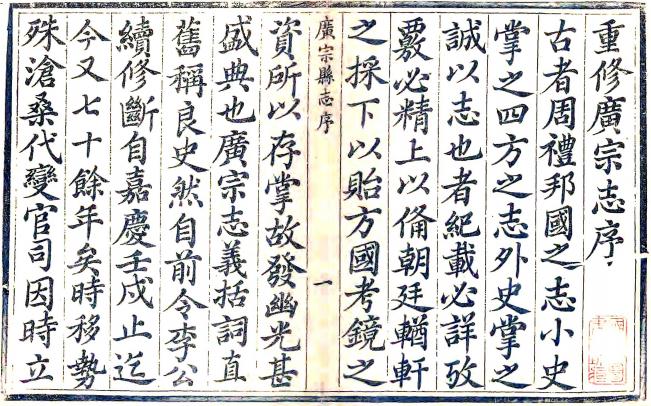 重修廣宗志序
古者周禮邦國之志小史
掌之四方之志外史掌之
誠以志也者紀載必詳攷
覈必精上以俻朝廷輶軒
之採下以貽方國考鏡之
廣宗縣志序
一
資所以存掌故發幽光甚
盛典也廣宗志義括詞直
舊稱良史然自前令李公
續修斷自嘉慶壬戌止迄
今又七十餘年矣時移勢
殊滄桑代變官司因時立